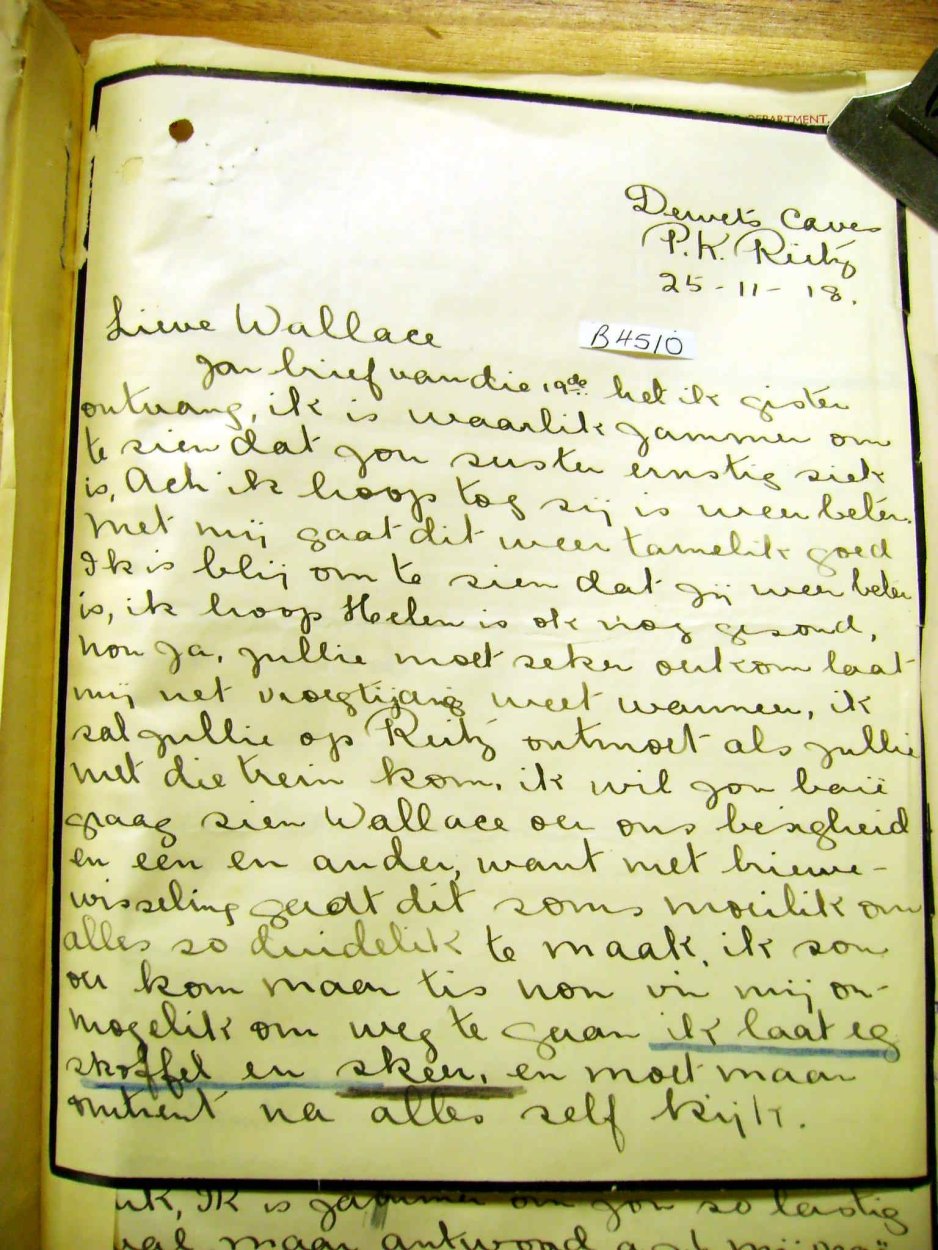 DEPARTMENT,
Dewets Caves
P.K. Reitz
25-11-18.
Lieve Wallace
B4510
Jou brief van die 19de het ik gister
ontvang, ik is waarlik jammer om
te sien dat jou suster ernstig siek
is, Ach ik hoop tog sij is weer beter.
Met mij gaat dit weer tamelik goed
Ik is blij om te sien dat jij weer beter
is, ik hoop Helen is ok nog gesond,
nou ja, jullie moet seker oerkom laat
mij net vroegtijdig weet wanneer, ik
sal jullie op Reitz ontmoet als jullie
met die trein kom, ik wil jou baië
graag sien Wallace oer ons besigheid
en een en ander, want met briewe-
wisseling gaat dit soms moeilik om
alles so duidelik te maak, ik sou
oer kom maar tis nou vir mij on-
mogelik om weg te gaan ik laat eg
skoffel en skeer, en moet maar
omtrent na alles self kijk.
Ik is jammer om jou so lastig
maar antwoord